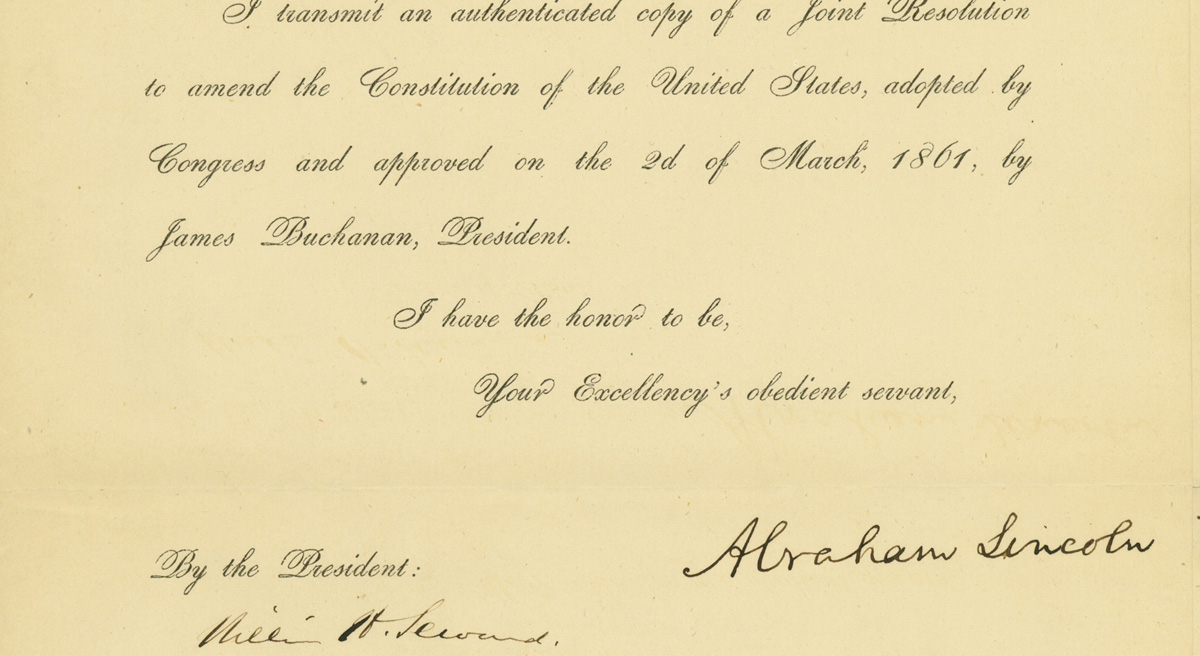 I transmit an authenticated copy of a Joint Resolution
to amend the Constitution of the United States, adopted by
Congress and approved on the 2d of March, 1861, by
James Buchanan, President.
I have the honor to be,
Your Excellency's obedient servant,
Abraham Lincoln
By the President:
William H. Seward.